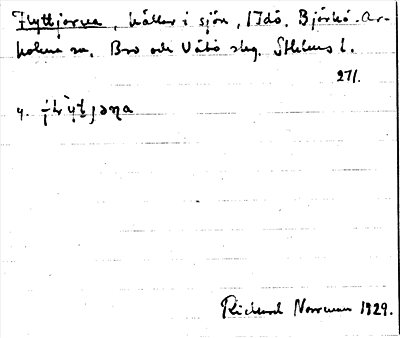 Flyttjorna, hällar i sjön, Idö. Björkö-Ar-
holma sn. Bro och Vätö skg. Sthlms l.
271.
y.
Rickard Norrman 1929.